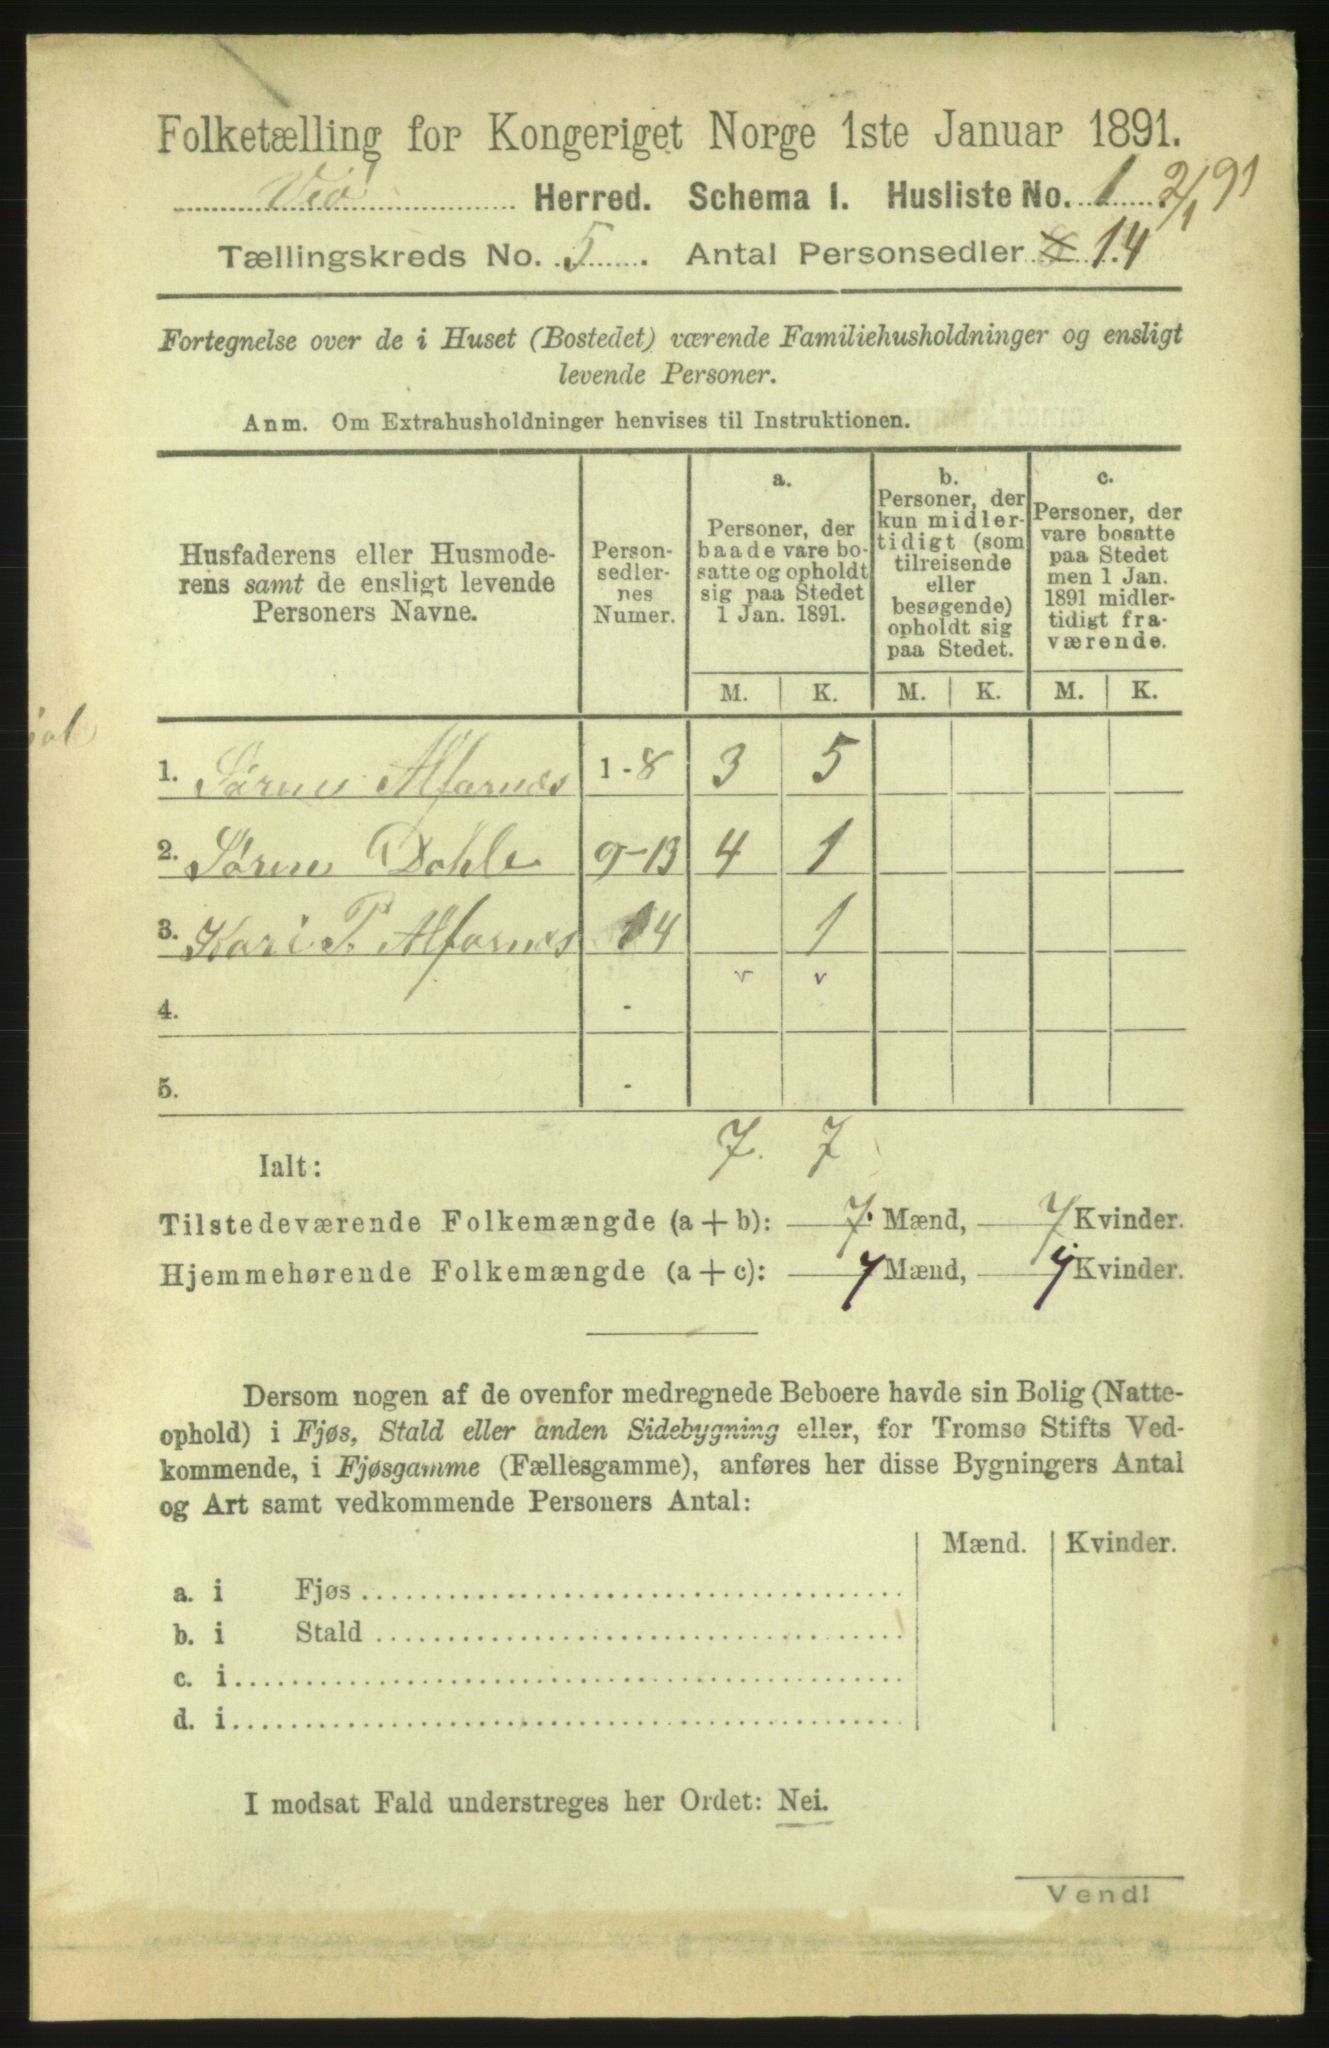 Folketælling for Kongeriget Norge 1ste Januar 1891.
Veø Herred. Schema 1. Husliste No. 1 2/1 91
Tællingskreds No. 5. Antal Personsedler 14
Fortegnelse over de i Huset (Bostedet) værende Familiehusholdninger og ensligt
levende Personer.
Anm. Om Extrahusholdninger henvises til Instruktionen.
Husfaderens eller Husmode-
rens samt de ensligt levende
Personers Navne.
Person-
sedler-
nes
Numer.
a.
Personer, der
baade vare bo-
satte og opholdt
sig paa Stedet
1 Jan. 1891.
b.
Personer, der
kun midler-
tidigt (som
tilreisende
eller
besøgende)
opholdt sig
paa Stedet.
c.
Personer, der
vare bosatte
paa Stedet
men 1 Jan.
1891 midler-
tidigt fra-
værende.
M. K. M. K. M. K.
1. Søren Alfarnes 1-8 3 5
2. Søren Dahle 9-13 4 1
3. Kari P. Alfarnes 14 1
v v
4. -
5. -
Ialt: 7. 7
Tilstedeværende Folkemængde (a + b): 7. Mænd, 7 Kvinder.
Hjemmehørende Folkemængde (a + c): 7 Mænd, 7 Kvinder.
Dersom nogen af de ovenfor medregnede Beboere havde sin Bolig (Natte-
ophold) i Fjøs, Stald eller anden Sidebygning eller, for Tromsø Stifts Ved-
kommende, i Fjøsgamme (Fællesgamme), anføres her disse Bygningers Antal
og Art samt vedkommende Personers Antal:
Mænd. Kvinder.
a. i Fjøs
b. i Stald
c. i
d. i
I modsat Fald understreges her Ordet: Nei.
Vend!